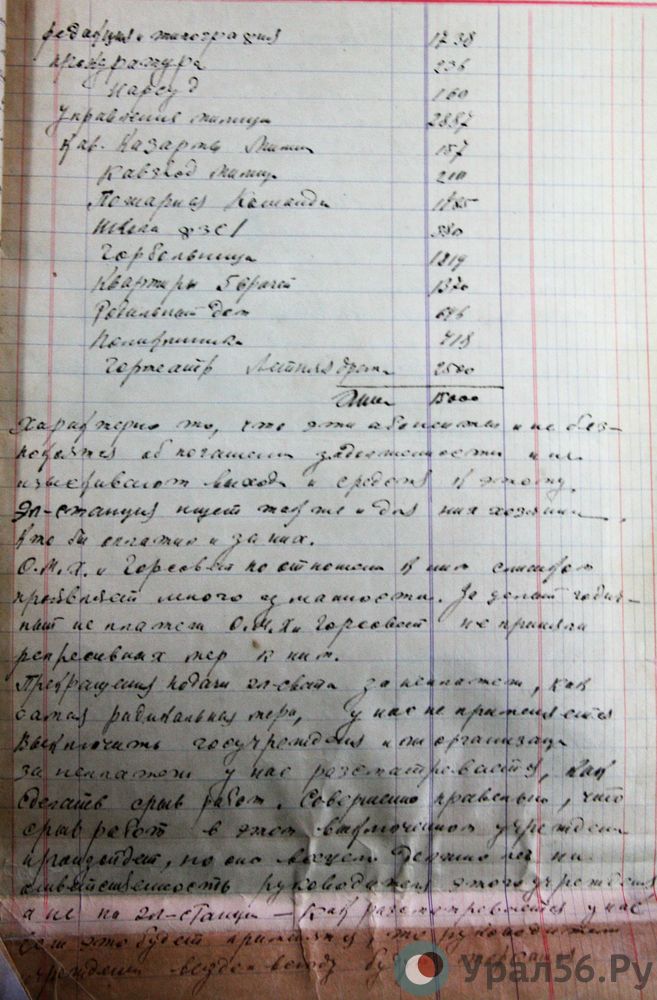 редакция и типография 1738
прокуратура 236
Нарсуд 160
Управление милици 2887
Кав. Казармы Мили 157
Кавзвод Милиц 210
Пожарная Команда 1785
Школа ФЗС 1 380
Горбольница 1219
Квартиры 5 врачей 1320
Родильный дом 676
Поликлиника 718
Гортеатр Летняя 2500
15000
Характерно то, что эти абоненты и не бес-
покоятся об погашени задолженности и не
изыскивают выхода и средств к этому.
Эл-станция ищет также и для них хозяина,
кто бы оплатил и за них.
О.М.Х. и Горсовет по отношени к ним слишком
проявляет много гуманности. За долгий годич-
ный не платеж О.М.Х и Горсовет не приняли
репресивных мер к ним.
Прекращения подачи эл-света за неплатеж, как
самая радикальная мера, у нас не применяется
Выключить госучреждения или организац
за неплатеж у нас разсматревается, как
сделать срыв работ. Совершено правельно, что
срыв работ в этом выключеном учрежден
произойдет, но оно всецело должно лечь на
ответственность руководителя этого учреждения
а не на эл-станци — как разсмотревается у нас
Если это будет применятся, то руководител
учреждени везде
Урал56.Ру